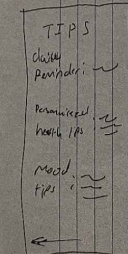 TIPS
daily
Reminder:
Personalized
health tips :
Mood
tips :